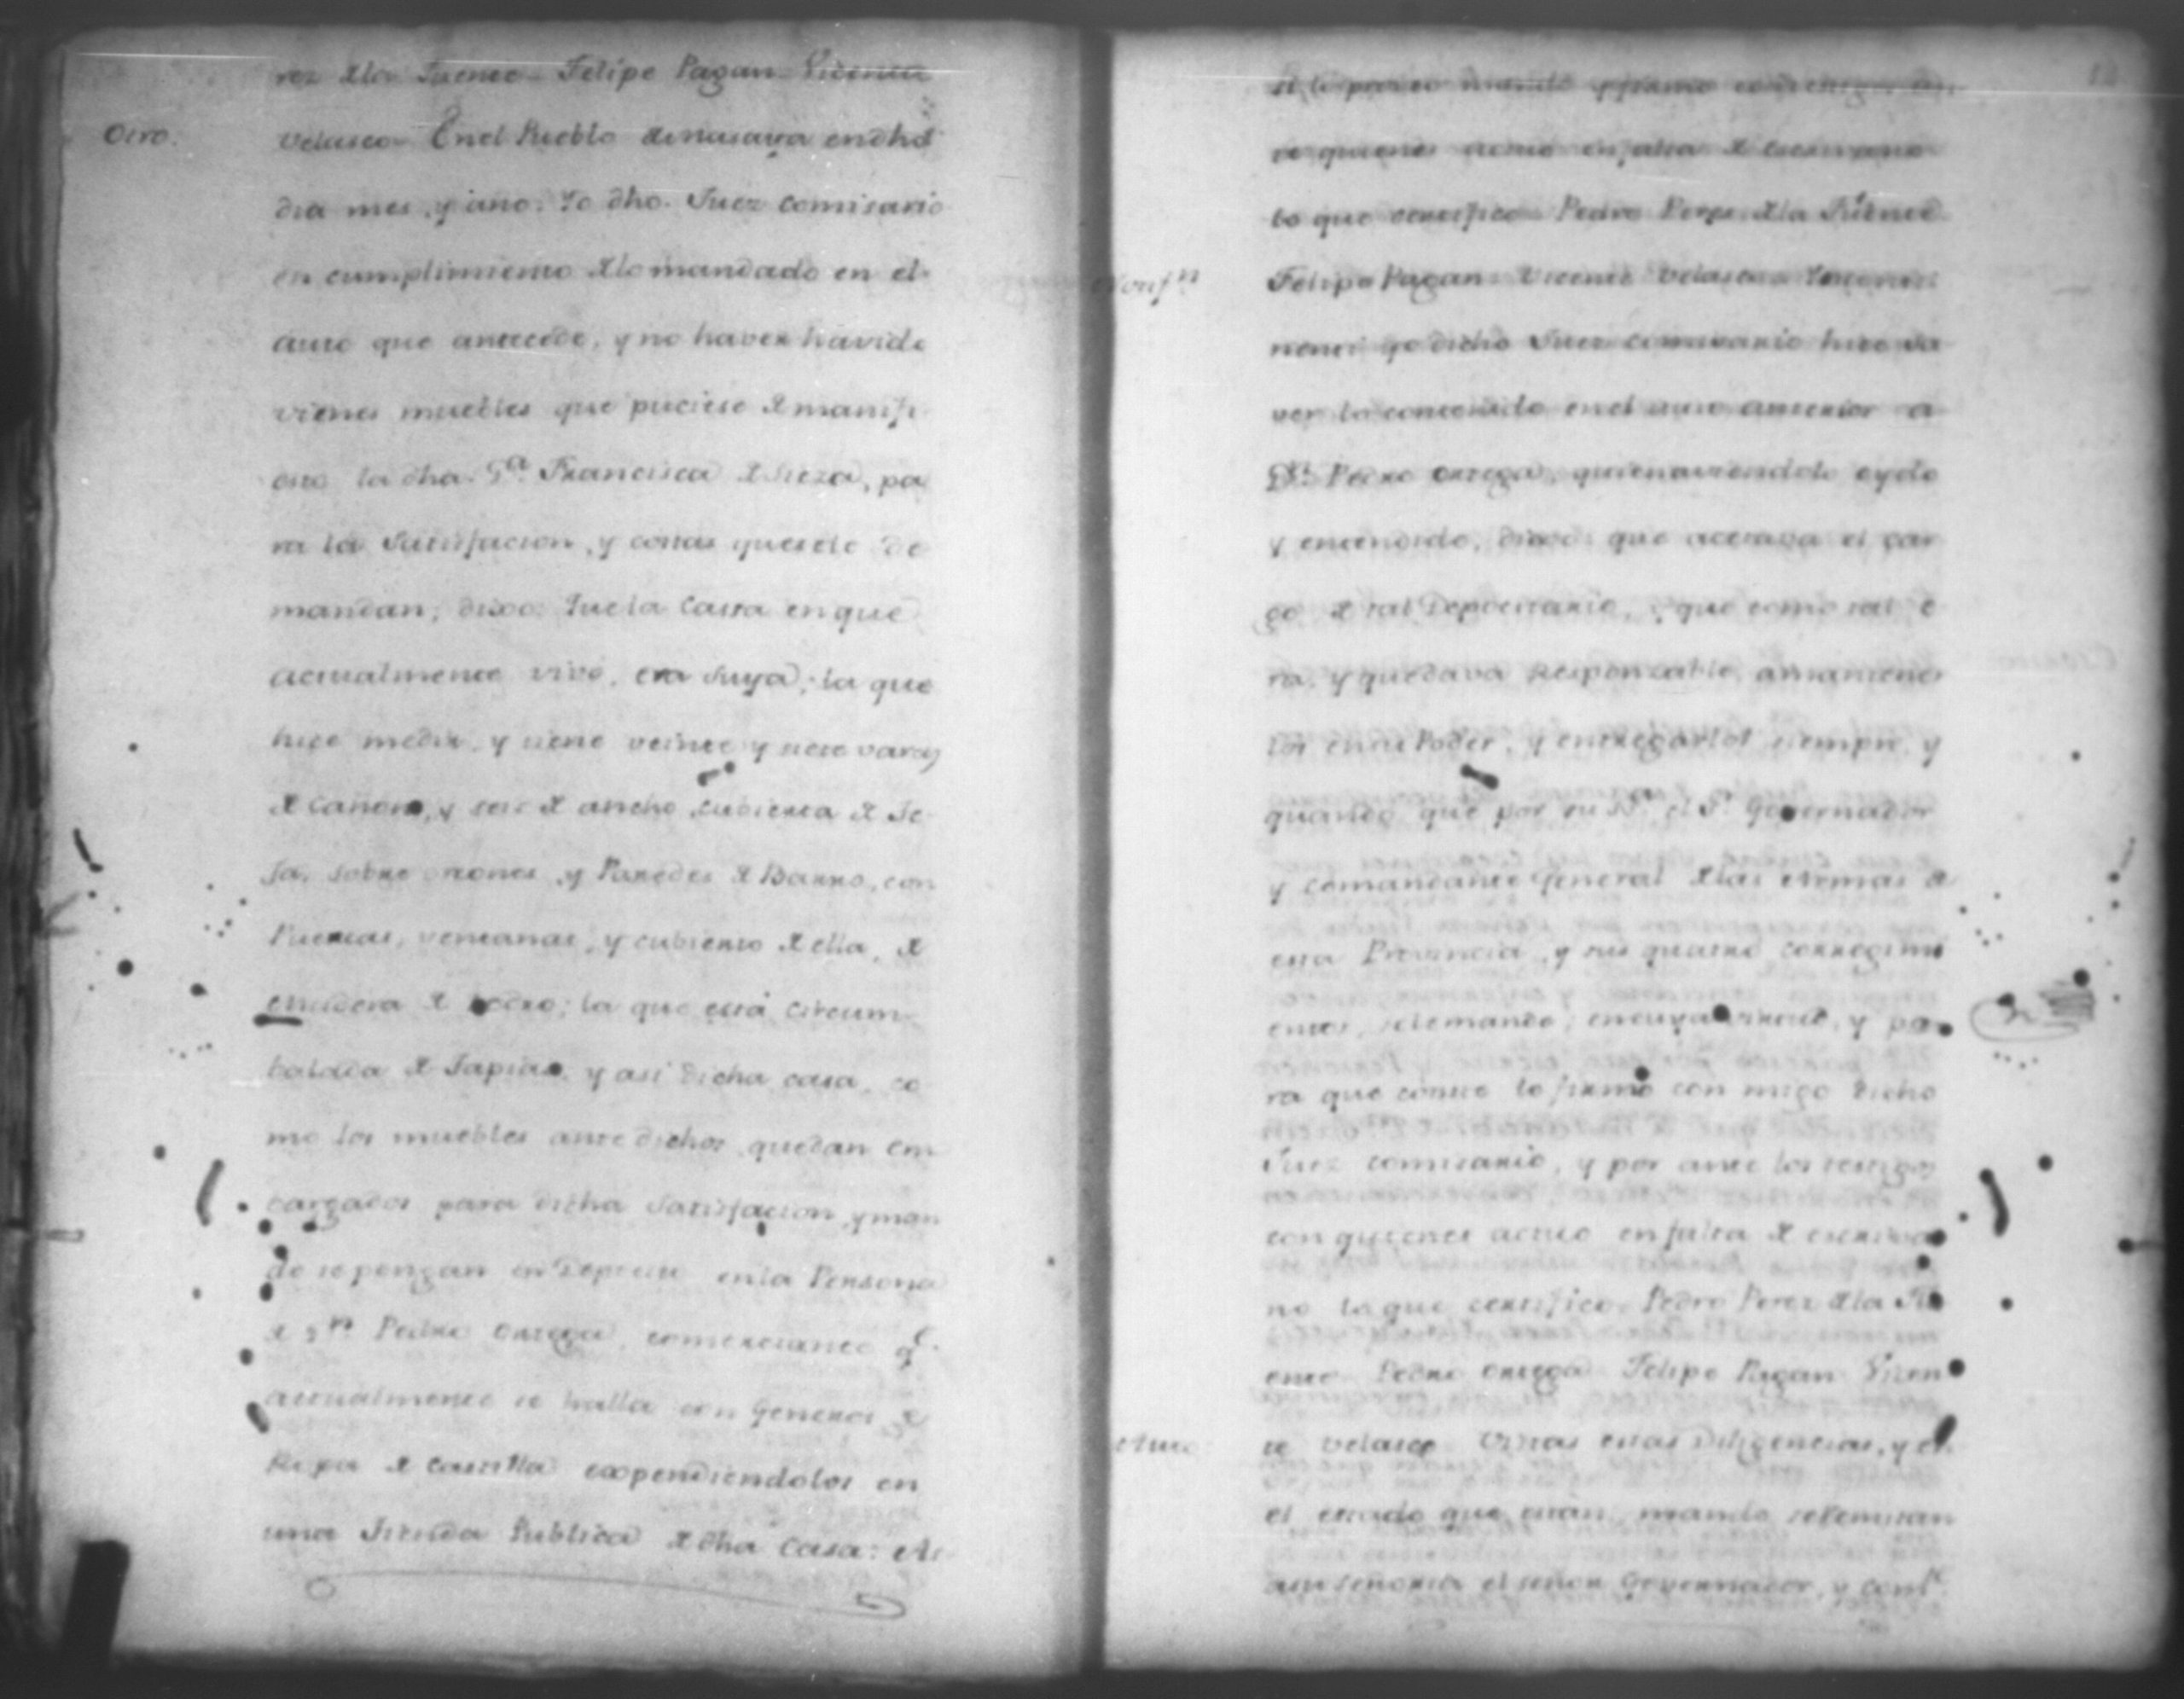 rez dela Fuente Felipe Pagan Vicente
Otro. Velasco. En el Pueblo de Masaya en dho
dia mes, y año. Yo dho. Juez comisario
en cumplimiento delo mandado en el
auto que antecede, y no haver havido
vienes muebles que puciese de manifi
esto la dha. Da. Francisca de, pa
ra la Satisfacion, y costas que sele de
mandan, dixo: Que la Cassa en que
actualmente vive, era Suya; la que
hice medir, y tiene veinte y siete varas
de cañon, y seis de ancho cubierta de Te
ja, sobre orcones, y Paredes de Barro, con
Puertas, ventanas, y cubierto de ella, de
madera de Cedro; la que está circum
balada de Tapias, y asi dicha casa, co
mo los muebles antedichos quedan em
bargados para dicha Satisfacion, y man
do se pongan en Deposito en la Persona
de Dn. Pedro Ortega, comerciante qe.
actualmente se halla con Generos de
Ropa de Castilla expendiendolos en
una Tienda Publica de dha Casa: As
si lo probeo mando y firmo con testigos con
re quienes actuo en falta de escrivano
lo que certifico Pedro Perez dela Fuente
Notifn. Felipe Pagan Vicente Velasco
nenti yo dicho Juez comisario hice sa
ver lo contenido en el auto anterior a
Dn. Pedro Ortega, quien aviendolo oydo
y entendido, dixo: que aceptava el car
go de tal Depocitario, y que como tal e
ra, y quedava Responzable, a mantener
los en su Poder, y entregarlos siempre, y
quando que por su Sa. el Sr. Governador
y comandante General delas Armas de
esta Provincia, y sus quatro corregimi
entos, sele mande; en cuya virtud, y pa
ra que conste lo firmó con migo dicho
Juez comisario, y por ante los testigos
con quienes actuo en falta de escriva
no lo que certifico. Pedro Perez dela Fu
ente Pedro Ortega Felipe Pagan Vicen
Auto te Velasco Vistas estas Diligencias, y en
el estado que están, mando se Remitan
a su Señoria el señor Governador, y comte.